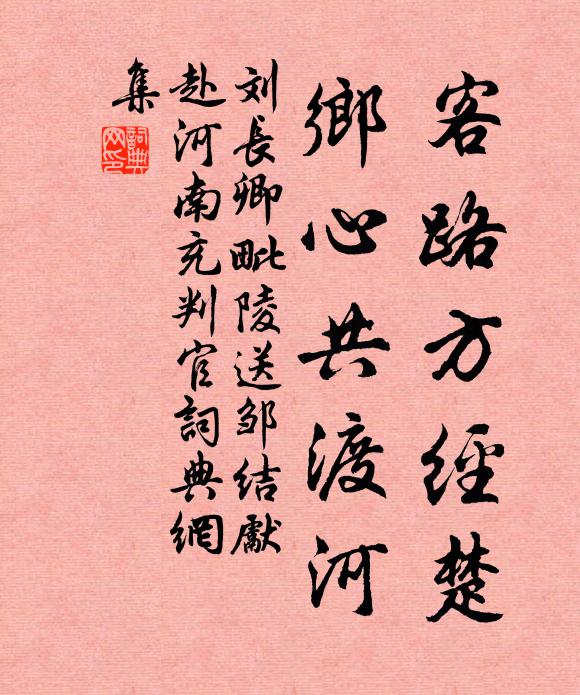 客路方經楚
鄉心共渡河
刘長卿毗陵送邹结獻
赴河南充判官詞典網
集
詞典
网印